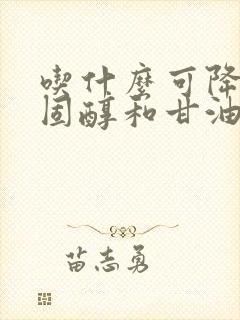 喫什麼可降
固醇和甘油
苗志勇